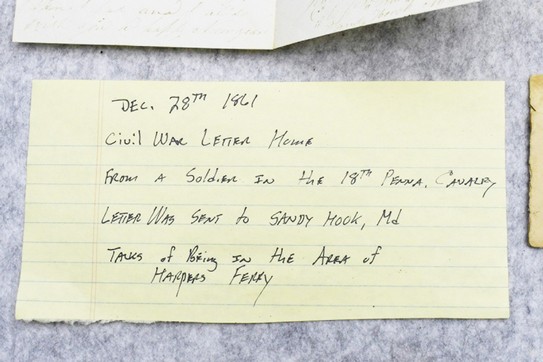 DEC. 28TH 1861
Civil WAR LETTER Home
FROM A Soldier IN the 18TH PENNA. CAVALRY
LETTER WAS SENT to SANDY HOOK, Md
TALKS of Being IN the AREA of
HARPERS FERRY